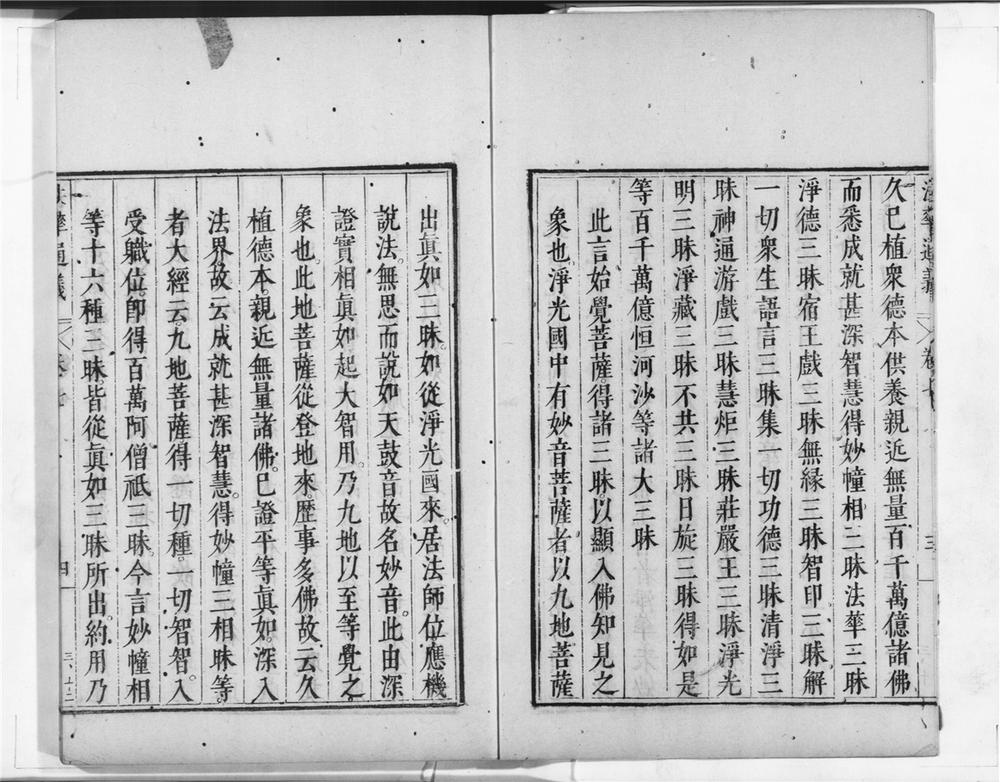 久已植衆德本供養親近無量百千萬億諸佛
而悉成就甚深智慧得妙幢相三昧法華三昧
淨德三昧宿王戲三昧無緣三昧智印三昧解
一切衆生語言三昧集一切功德三昧清淨三
昧神通游戲三昧慧炬三昧莊嚴王三昧淨光
明三昧淨藏三昧不共三昧日旋三昧得如是
等百千萬億恒河沙等諸大三昧
此言始覺菩薩。得諸三昧以顯入佛知見之
象也。淨光國中有妙音菩薩者以九地菩薩
出眞如三昧。如從淨光國來。居法師位。應機
說法。無思而說如天鼓音故名妙音。此由深
證實相眞如起大智用。乃九地以至等覺之
象也。此地菩薩從登地來。歷事多佛故云久
植德本。親近無量諸佛。已證平等眞如。深入
法界。故云成就甚深智慧。得妙幢三相昧等
者大經云。九地菩薩得一切種。一切智智。入
受職位。卽得百萬阿僧祇三昧。今言妙幢相
等十六種三昧。皆從眞如三昧所出。約用乃
法華通義
卷七
四